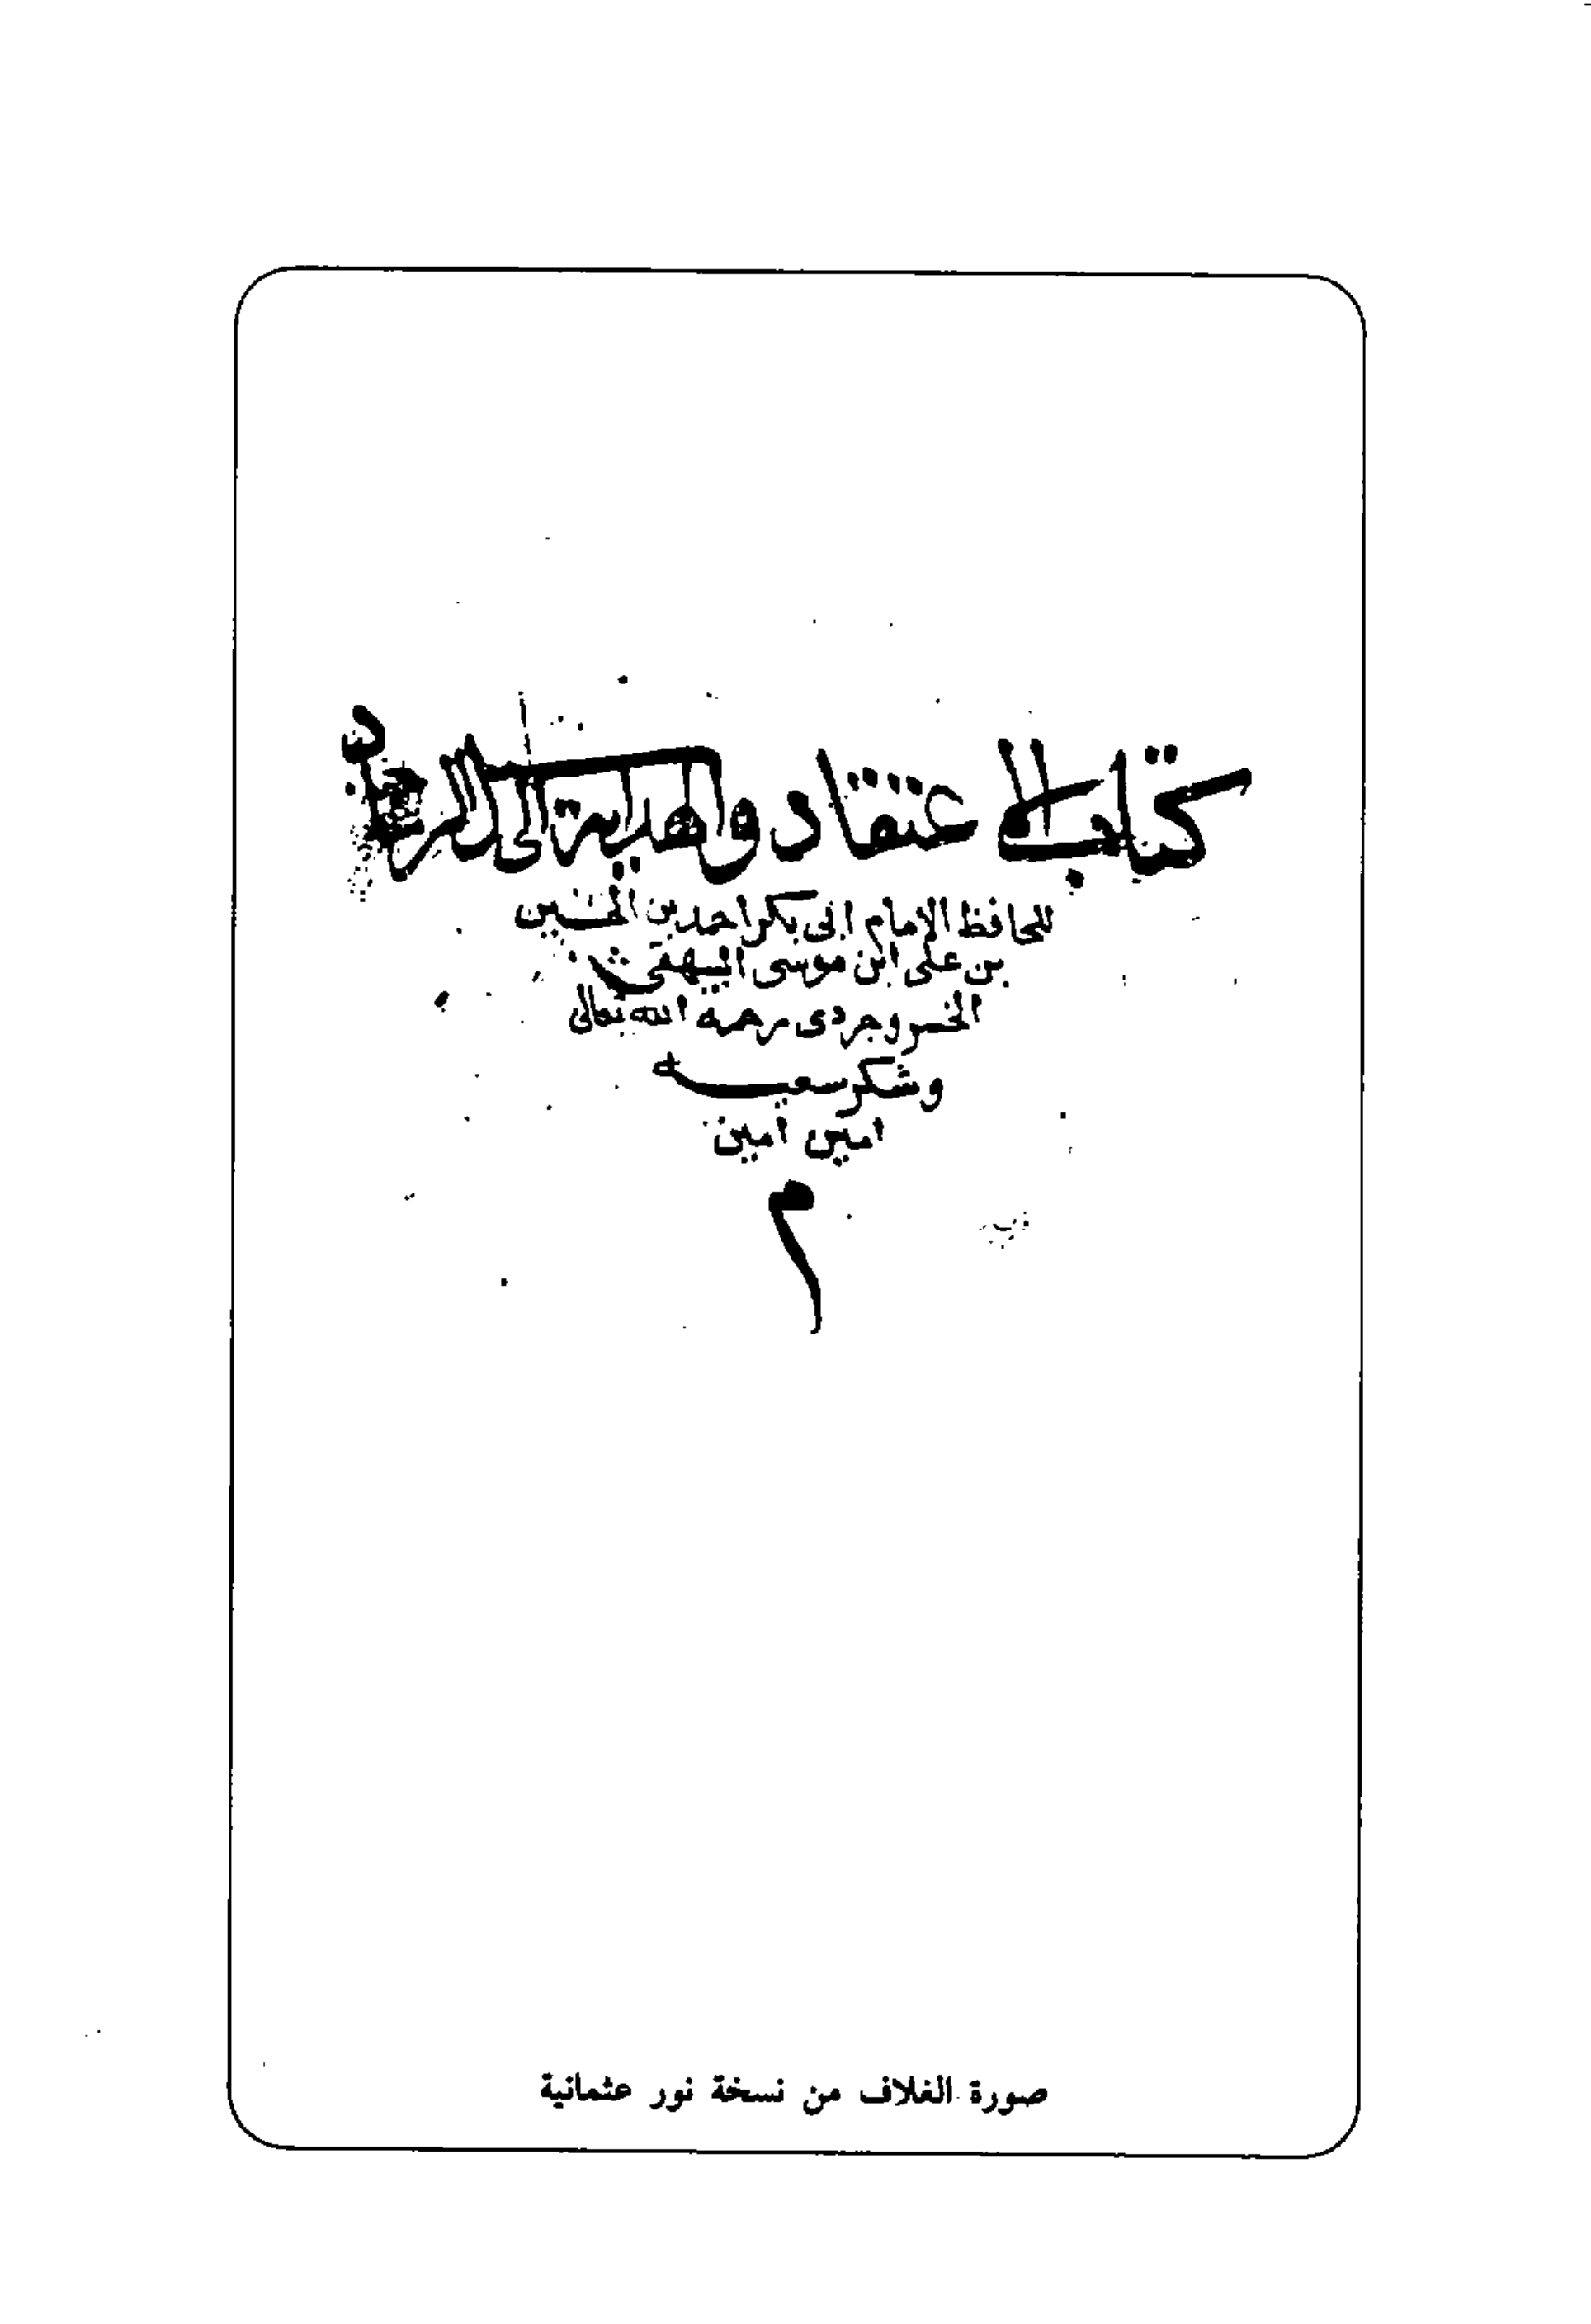 كتاب الاعتقاد والهداية الى الرشاد
للحافظ الامام ابى بكر احمد بن الحسين
بن على ابن موسى البيهقى
الخسروجردى رحمة الله تعالى
وشكر سعيه
امين امين
م
صورة الغلاف من نسخة نور عثمانية